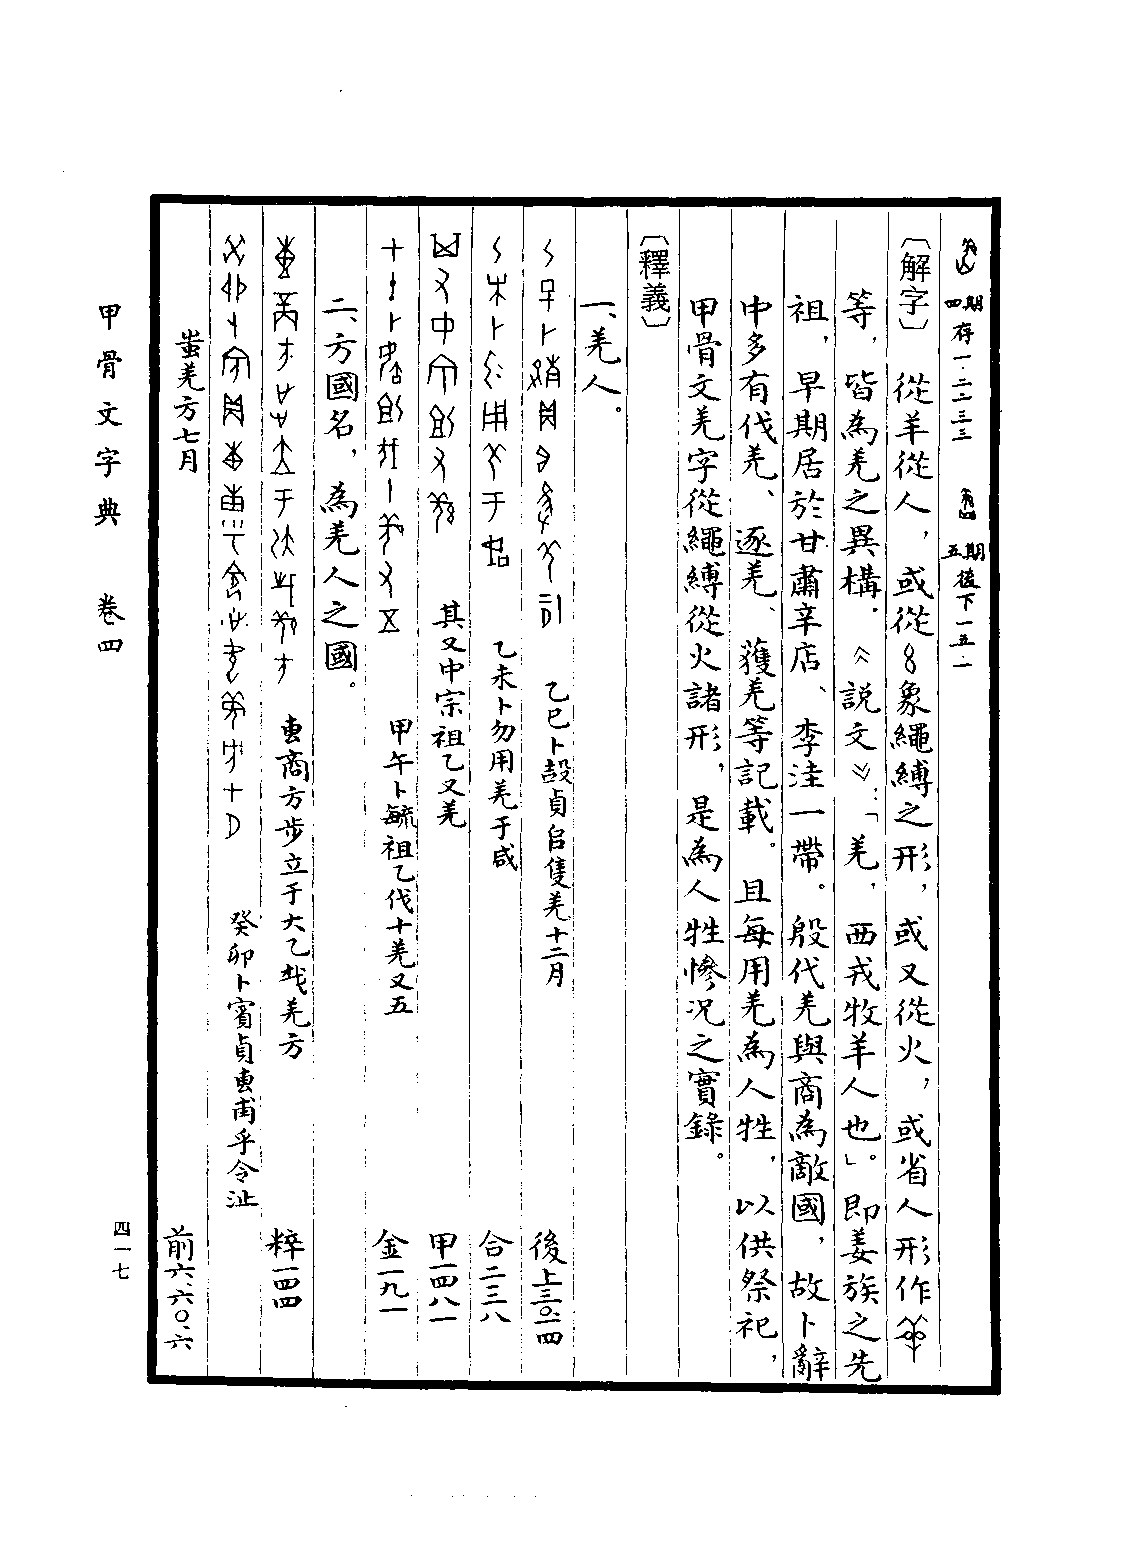 四期 存一·二二三三 五期 後下一五·一
〔解字〕從羊從人，或從象繩縛之形，或又從火，或省人形作
等，皆為羌之異構．《說文》：「羌，西戎牧羊人也。」即姜族之先
祖，早期居於甘肅辛店、李洼一帶。殷代羌與商為敵國，故卜辭
中多有伐羌、逐羌、獲羌等記載。且每用羌為人牲，以供祭祀，
甲骨文羌字從繩縛從火諸形，是為人牲慘況之實錄。
〔釋義〕
一、羌人。
乙巳卜㱿貞㠯隻羌十二月 後上三〇·一四
乙未卜勿用羌于咸 合二三八
其又中宗祖乙又羌 甲一四八一
甲午卜毓祖乙伐十羌又五 金一九一
二、方國名，為羌人之國。
叀商方步立于大乙𢦔羌方 粹一四四
癸卯卜賓貞叀甫乎令沚
羌方七月 前六·六〇·六
甲骨文字典 卷四
四一七